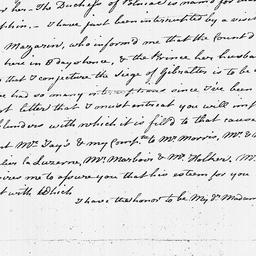 her. The Duchess of Polinac is named for
phin. I have just been interrupted by a visit
Mazarin, who informed me that the Count d'
here in Days hence, & the Prince her husba
that I conjecture the Siege of Gibralter is to be
had so many since I've been
letter that I must entreat you will imp
blunders with which it is fill'd to that cause
Mr. Jay's & my Compts. to Mr. Morris, Mr. &
la Luzerne, Mr. Marbois & Mr. Holker, M
me to assure you that his esteem for you
with Which
I have the honor to be My Dr. Madam